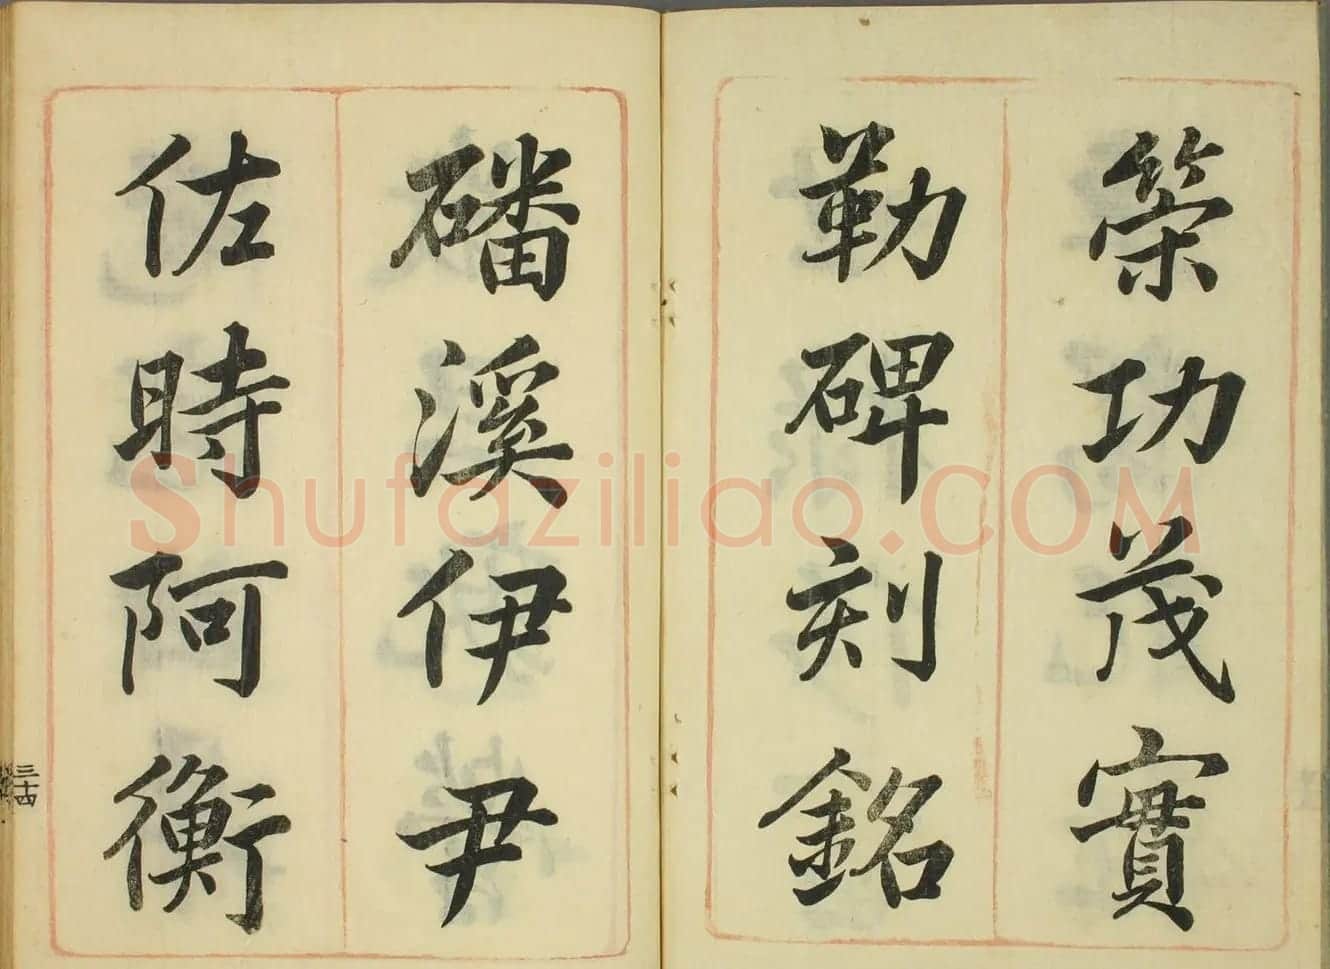 策功茂實
勒碑刻銘
磻溪伊尹
佐時阿衡
三十四
Shufaziliao.COM